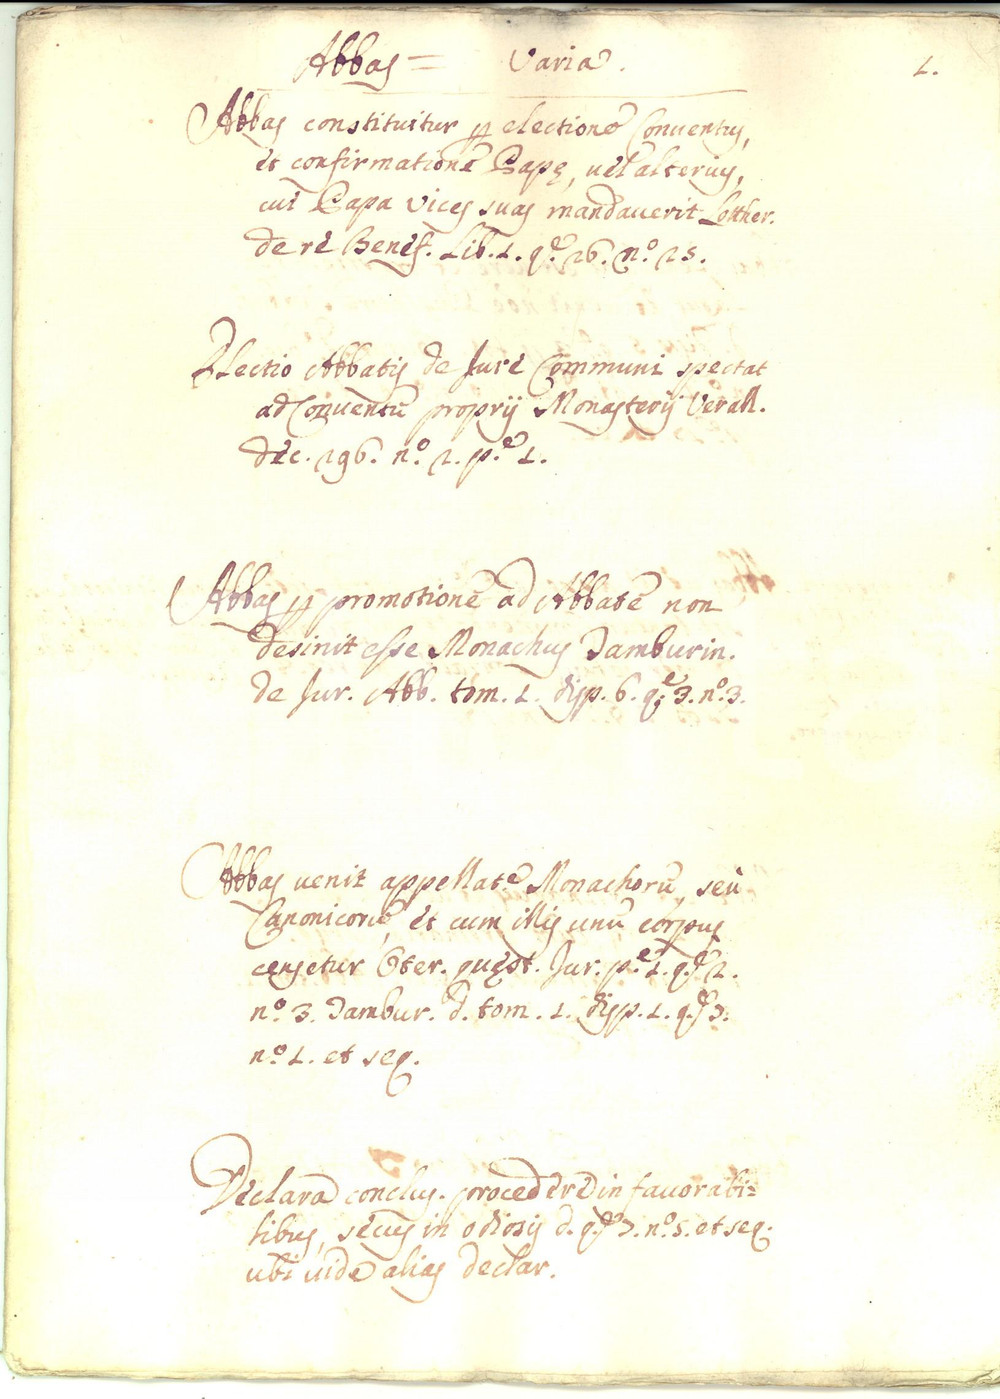 Abbas = Varia. 1.
Abbas constituitur p electionē Conventus,
et confirmationē Papę, vel alterius,
cui Papa vices suas mandaverit Lotther.
de re Benef. Lib. 1. q.e 26. n.o 25.
Electio Abbatis de Jure Communi spectat
ad Conventū proprij Monasterij Verall.
dec. 296. n.o 2. p.e 1.
Abbas p promotionē ad Abbatē non
desinit esse Monachus Tamburin.
de Jur. Abb. tom. 1. disp. 6. q.e 3. n.o 3.
Abbas venit appellat.e Monachorū, seu
Canonicorū, et cum illis unū corpus
censetur Oter. quęst. Jur. p.e 1. q. 2.
n.o 3. Tambur. d. tom. 1. disp. 1. q. 7.
n.o 1. et seq.
Declara conclus. procedere in favorabi=
libus, secus in odiosis d. q. 7. n.o 5. et seq.
ubi vide alias declar.